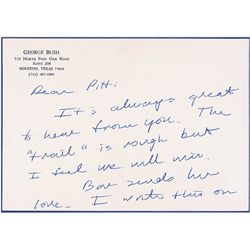 GEORGE BUSH
710 NORTH POST OAK ROAD
SUITE 208
HOUSTON, TEXAS 77024
Dear Pitt:
It's always great
to hear from you. The
"trail" is rough but
I feel we will win.
Bar sends her
love. I wrote this on